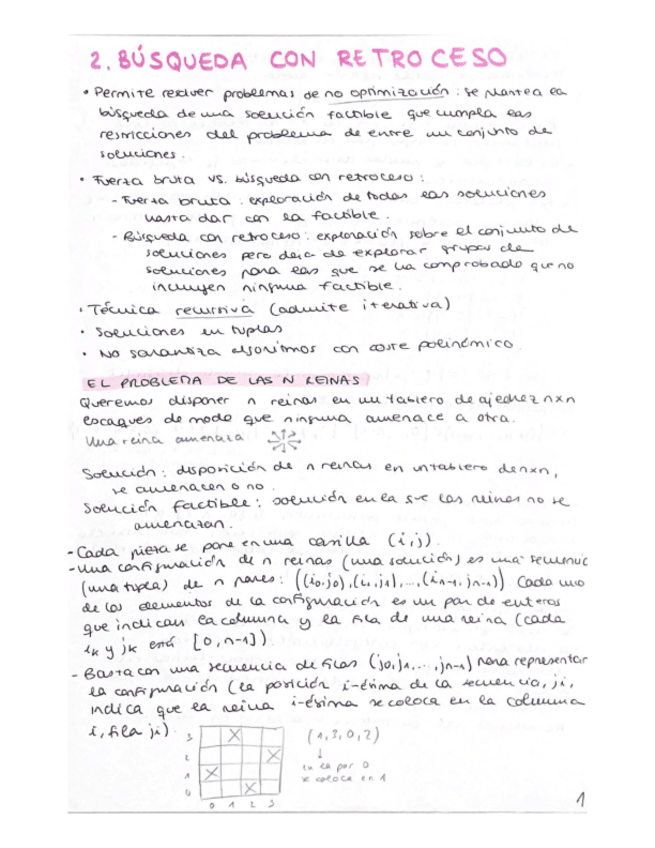 2. BÚSQUEDA CON RETROCESO
• Permite resolver problemas de no optimización: se plantea la
búsqueda de una solución factible que cumpla las
restricciones del problema de entre un conjunto de
soluciones.
• Fuerza bruta vs. búsqueda con retroceso:
- Fuerza bruta: exploración de todas las soluciones
hasta dar con la factible.
- Búsqueda con retroceso: exploración sobre el conjunto de
soluciones pero deja de explorar grupos de
soluciones para las que se ha comprobado que no
incluyen ninguna factible.
• Técnica recursiva (admite iterativa)
• Soluciones en tuplas
• No garantiza algoritmos con coste polinómico.
EL PROBLEMA DE LAS N REINAS
Queremos disponer n reinas en un tablero de ajedrez nxn
escaques de modo que ninguna amenace a otra.
Una reina amenaza
Solución: disposición de n reinas en un tablero de nxn,
se amenacen o no.
Solución factible: solución en la que las reinas no se
amenazan.
- Cada pieza se pone en una casilla (i,j).
- Una configuración de n reinas (una solución) es una secuenc
(una tupla) de n pares: ((i0,j0),(i1,j1),...,(in-1,jn-1)) Cada uno
de los elementos de la configuración es un par de enteros
que indican la columna y la fila de una reina (cada
ik y jk está [0,n-1]).
- Basta con una secuencia de filas (j0,j1,...,jn-1) para representar
la configuración (la posición i-ésima de la secuencia, ji,
indica que la reina i-ésima se coloca en la columna
i, fila ji).
3
2
1
0
0 1 2 3
(1,3,0,2)
↓
en la pos 0
se coloca en 1
1